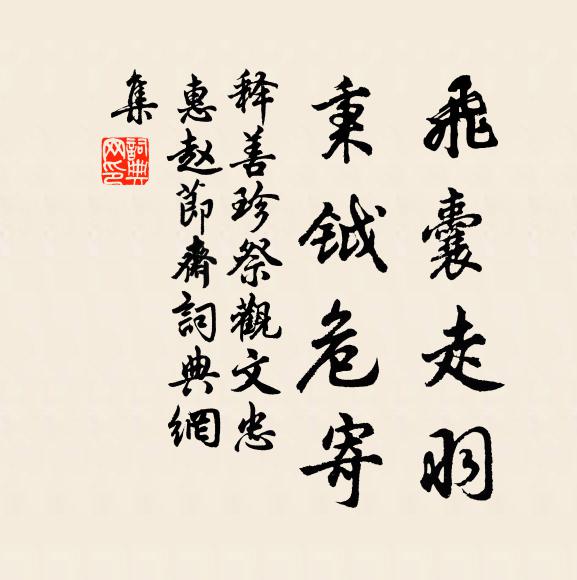 飛囊走羽
秉鉞危寄
释善珍祭觀文忠
惠赵節齋詞典網
集
詞典網印